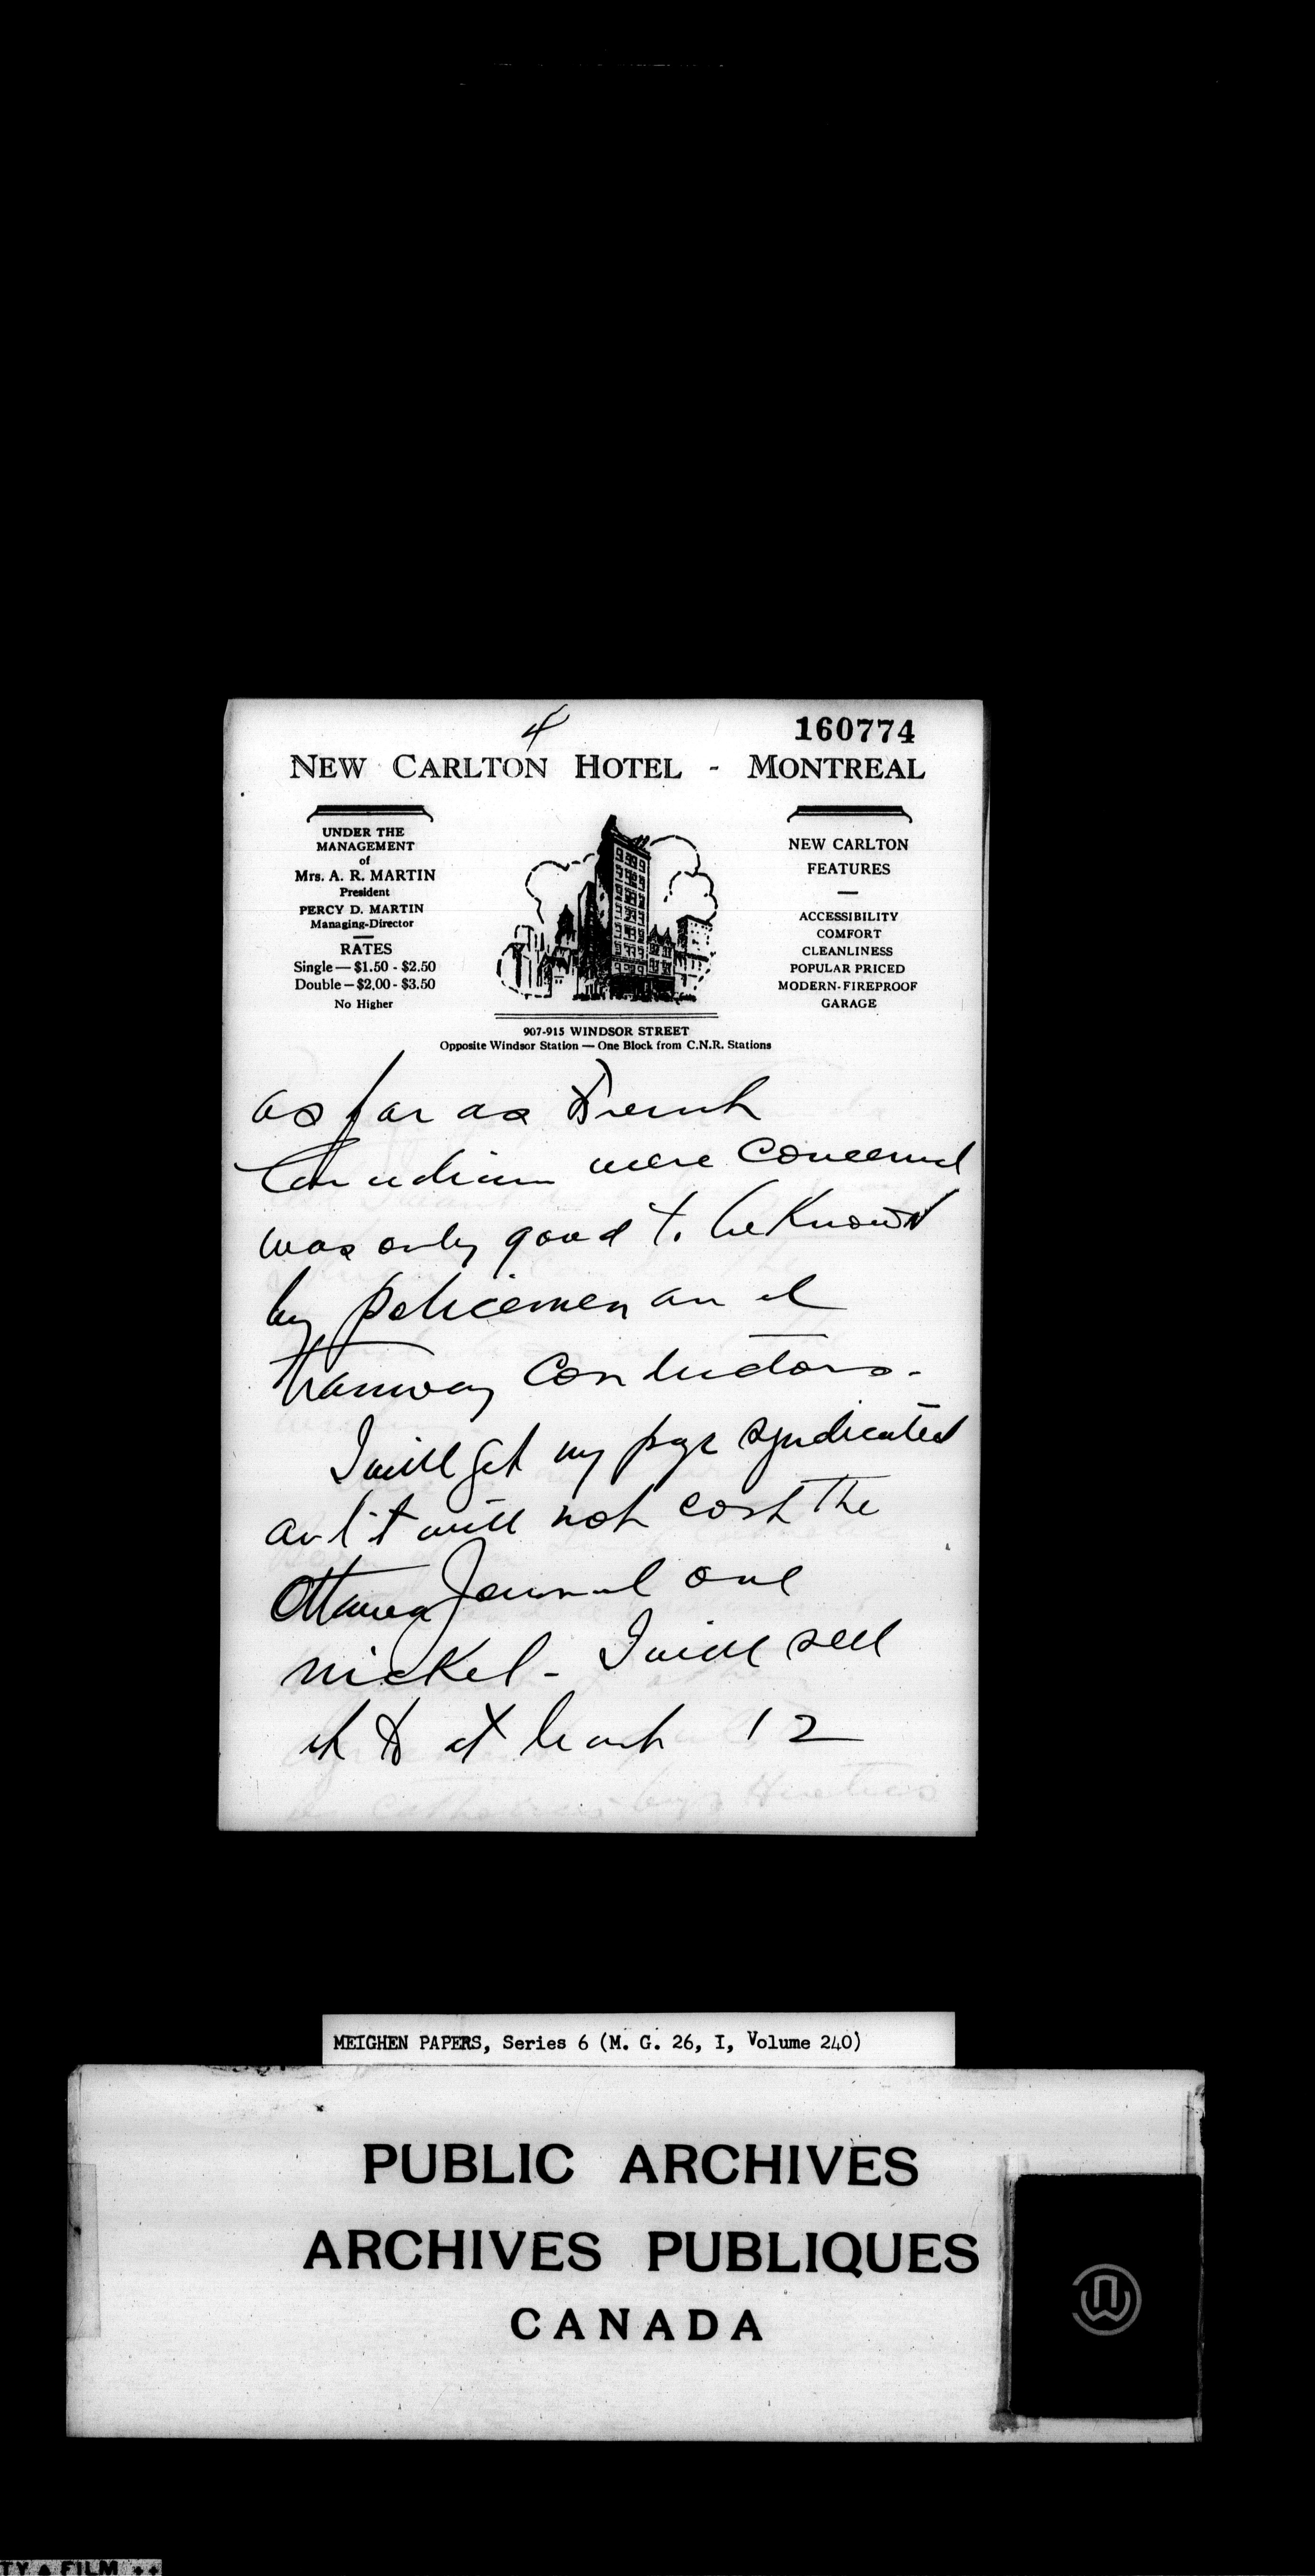 4
160774
NEW CARLTON HOTEL - MONTREAL
UNDER THE
MANAGEMENT
of
Mrs. A. R. MARTIN
President
PERCY D. MARTIN
Managing-Director
RATES
Single — $1.50 - $2.50
Double — $2.00 - $3.50
No Higher
NEW CARLTON
FEATURES
ACCESSIBILITY
COMFORT
CLEANLINESS
POPULAR PRICED
MODERN-FIREPROOF
GARAGE
907-915 WINDSOR STREET
Opposite Windsor Station — One Block from C.N.R. Stations
as far as French
Canadians were concerned
was only good to be known
by policemen and
tramway conductors.
I will get my page syndicated
and it will not cost the
Ottawa Journal one
nickel - I will sell
it to at least 12
MEIGHEN PAPERS, Series 6 (M. G. 26, I, Volume 240)
PUBLIC ARCHIVES
ARCHIVES PUBLIQUES
CANADA
TY FILM